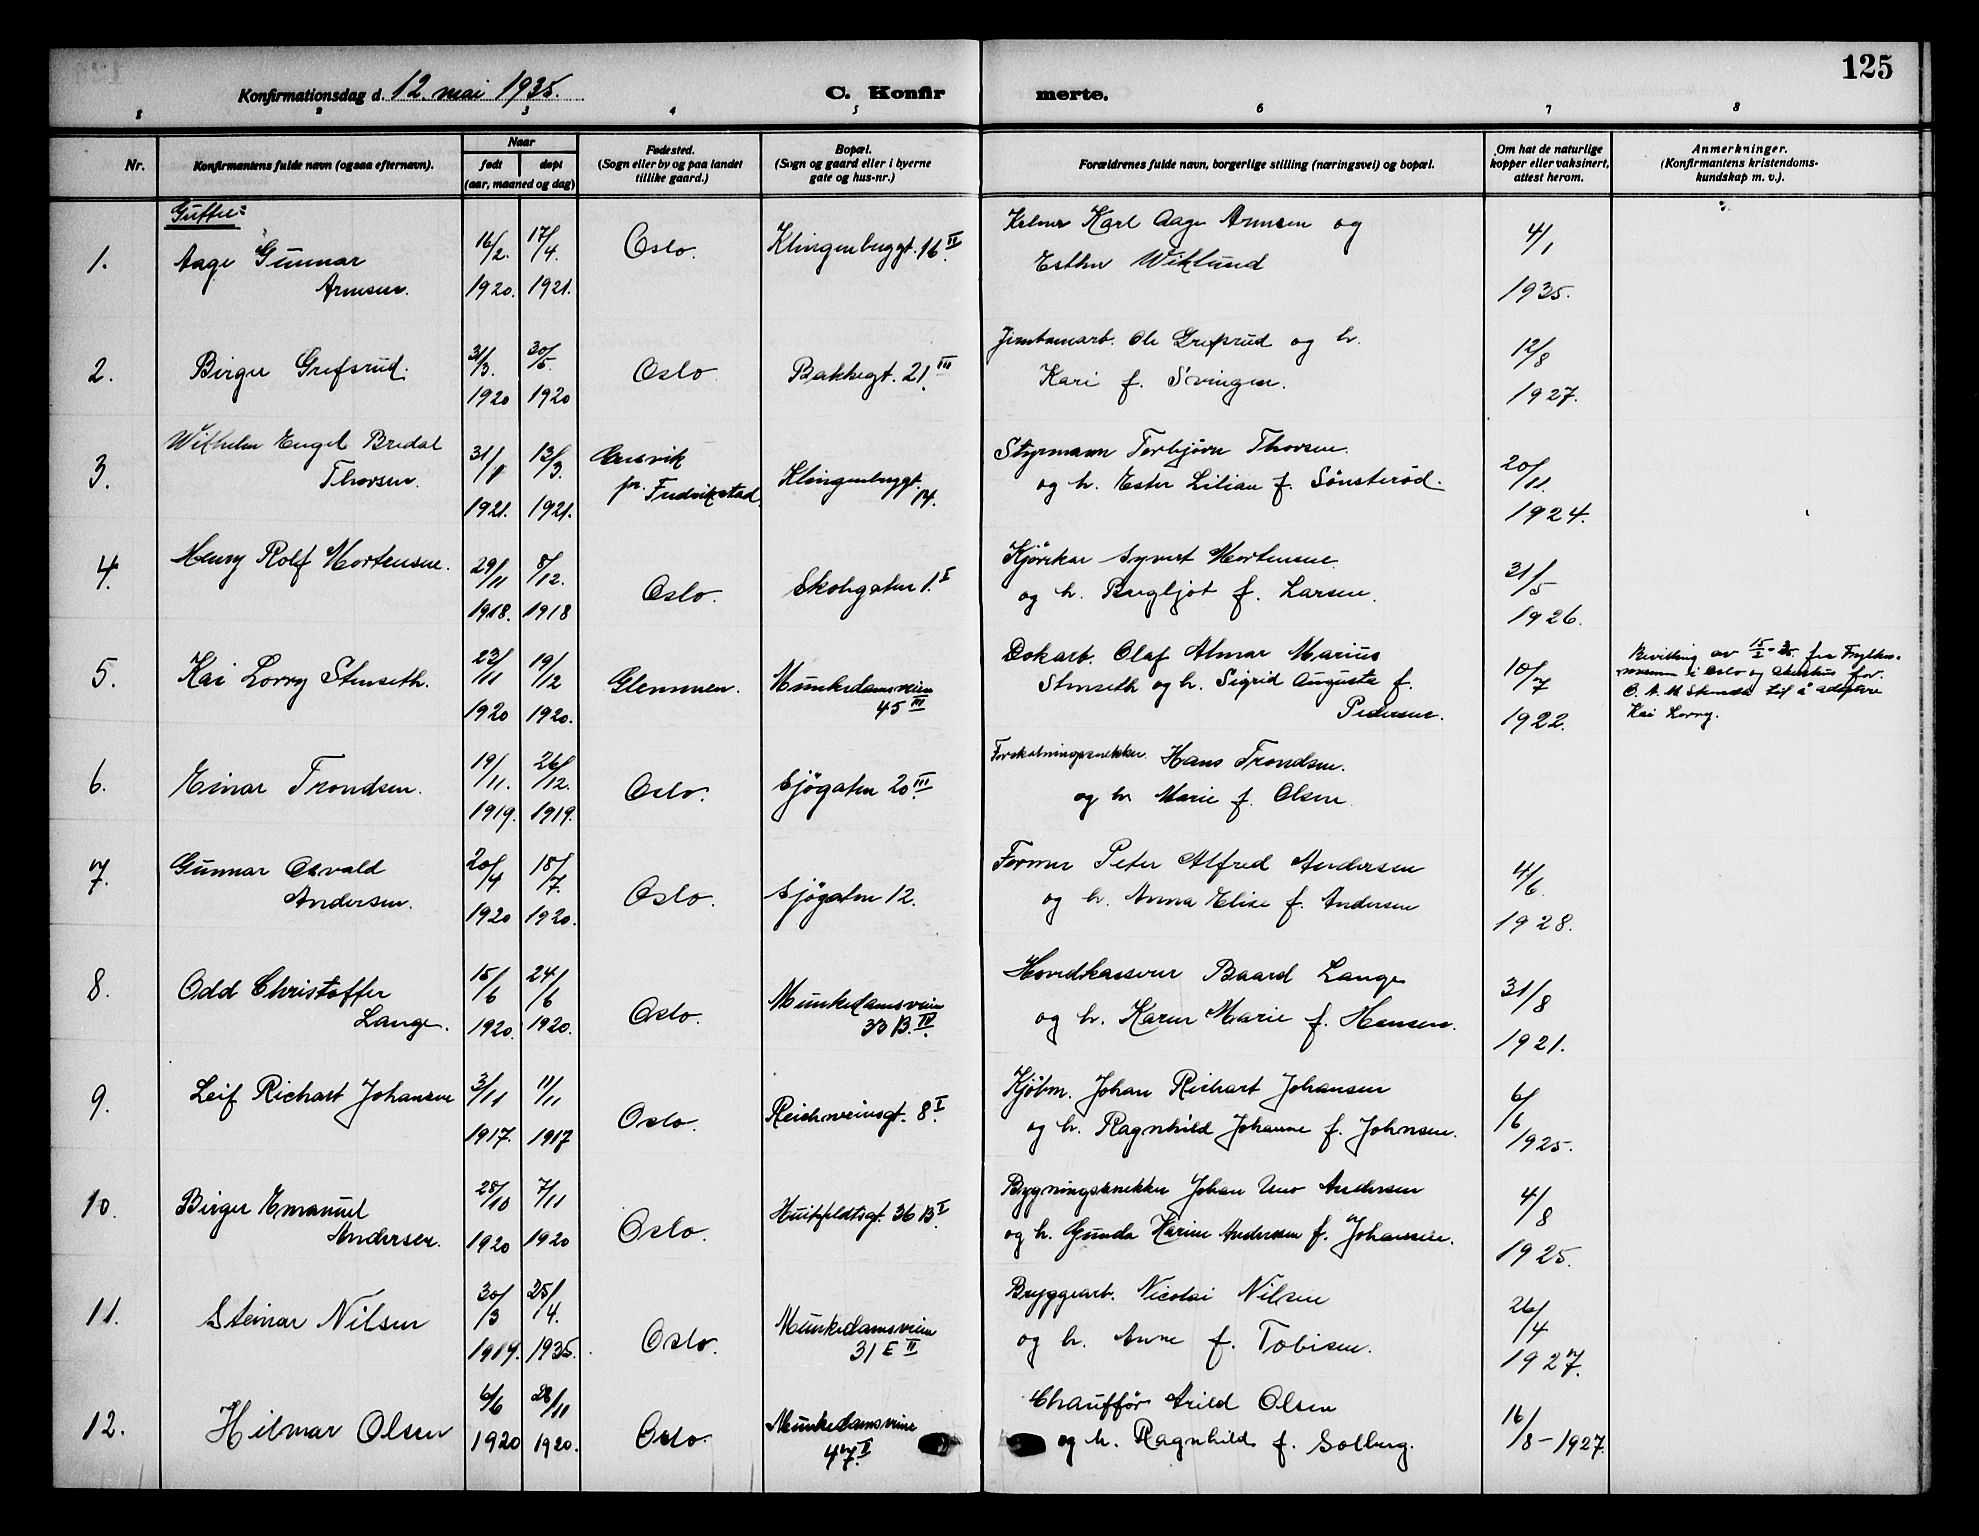 125
Konfirmationsdag d. 12. mai 1935.
C. Konfir merte.
1 2 3 4 5 6 7 8
Nr.
Konfirmantens fulde navn (ogsaa efternavn).
Naar
født døpt
(aar, maaned og dag)
Fødested.
(Sogn eller by og paa landet
tillike gaard.)
Bopæl.
(Sogn og gaard eller i byerne
gate og hus-nr.)
Forældrenes fulde navn, borgerlige stilling (næringsvei) og bopæl.
Om hat de naturlige
kopper eller vaksinert,
attest herom.
Anmerkninger.
(Konfirmantens kristendoms-
kundskap m. v.).
Gutter:
1. Aage Gunnar
Arnesen.
16/2. 1920.
17/4. 1921.
Oslo.
Klingenberggt. 16 IV
Kelner Karl Aage Arnesen og
Esther Wiklund
4/1 1935.
2. Birger Grefsrud.
31/3. 1920
30/5. 1920
Oslo
Bakkegt. 21. III
Jernbanearb. Ole Grefsrud og h.
Kari f. Svingen.
12/8 1927.
3. Wilhelm Engel Bredal
Thorsen.
31/1 1921.
13/3. 1921.
pr. Fredrikstad
Klingenberggt.
14.
Styrmann Torbjörn Thorsen.
og h. Ester Lilian f. Sönsteröd.
20/11. 1924.
4. Henry Rolf Mortensen.
29/11 1918.
8/12. 1918
Oslo.
Skolegaten 1. I
Kjörekar Syvert Mortensen
og h. Bergljot f. Larsen.
31/5 1926.
5. Kai Lorry Stenseth.
23/11 1920
19/12 1920.
Glemmen.
Munkedamsveien
45 III
Dokarb. Olaf Almar Marius
Stenseth og h. Sigrid Auguste f.
Pedersen.
10/7 1922.
Bevilling av 15/2-35 fra Fylkes-
mannen i Oslo og Akershus for
O. A. M. Stenseth til å adoptere
Kai Lorry.
6. Einar Trondsen.
19/11. 1919.
26/12. 1919.
Oslo.
Sjögaten 20 III.
Forskalningssnekker Hans Trondsen.
og h. Marie f. Olsen.
7. Gunnar Osvald
Andersen.
20/4 1920
18/7. 1920.
Oslo.
Sjögaten 12.
Former Peter Alfred Andersen
og h. Anna Elise f. Andersen
4/6. 1928.
8. Odd Christoffer
Lange.
15/6 1920.
24/6 1920.
Oslo.
Munkedamsveien
33 B. IV.
Hovedkasserer Baard Lange
og h. Karen Marie f. Hansen.
31/8 1921.
9. Leif Richart Johansen
3/11 1917.
11/11 1917
Oslo.
Reichweinsgt. 8 I
Kjöbm. Johan Richart Johansen
og h. Ragnhild Johanne f. Johnsen.
6/6 1925.
10. Birger Emanuel
Andersen.
28/10 1920
7/11 1920
Oslo.
Huitfeldtsgt. 36 B I
Bygningssnekker Johan Uno Andersen
og h. Gunda Karine Andersen f. Johansen.
4/8 1925.
11. Steinar Nilsen
30/3 1919.
25/4. 1935.
Oslo.
Munkedamsveien
31 E II
Bryggearb. Nicolai Nilsen
og h. Anne f. Tobisen.
26/4 1927.
12. Hilmar Olsen
6/6 1920
28/11 1920.
Oslo.
Munkedamsveien
47. I
Chaufför Arild Olsen
og h. Ragnhild f. Solberg.
16/8-1927.